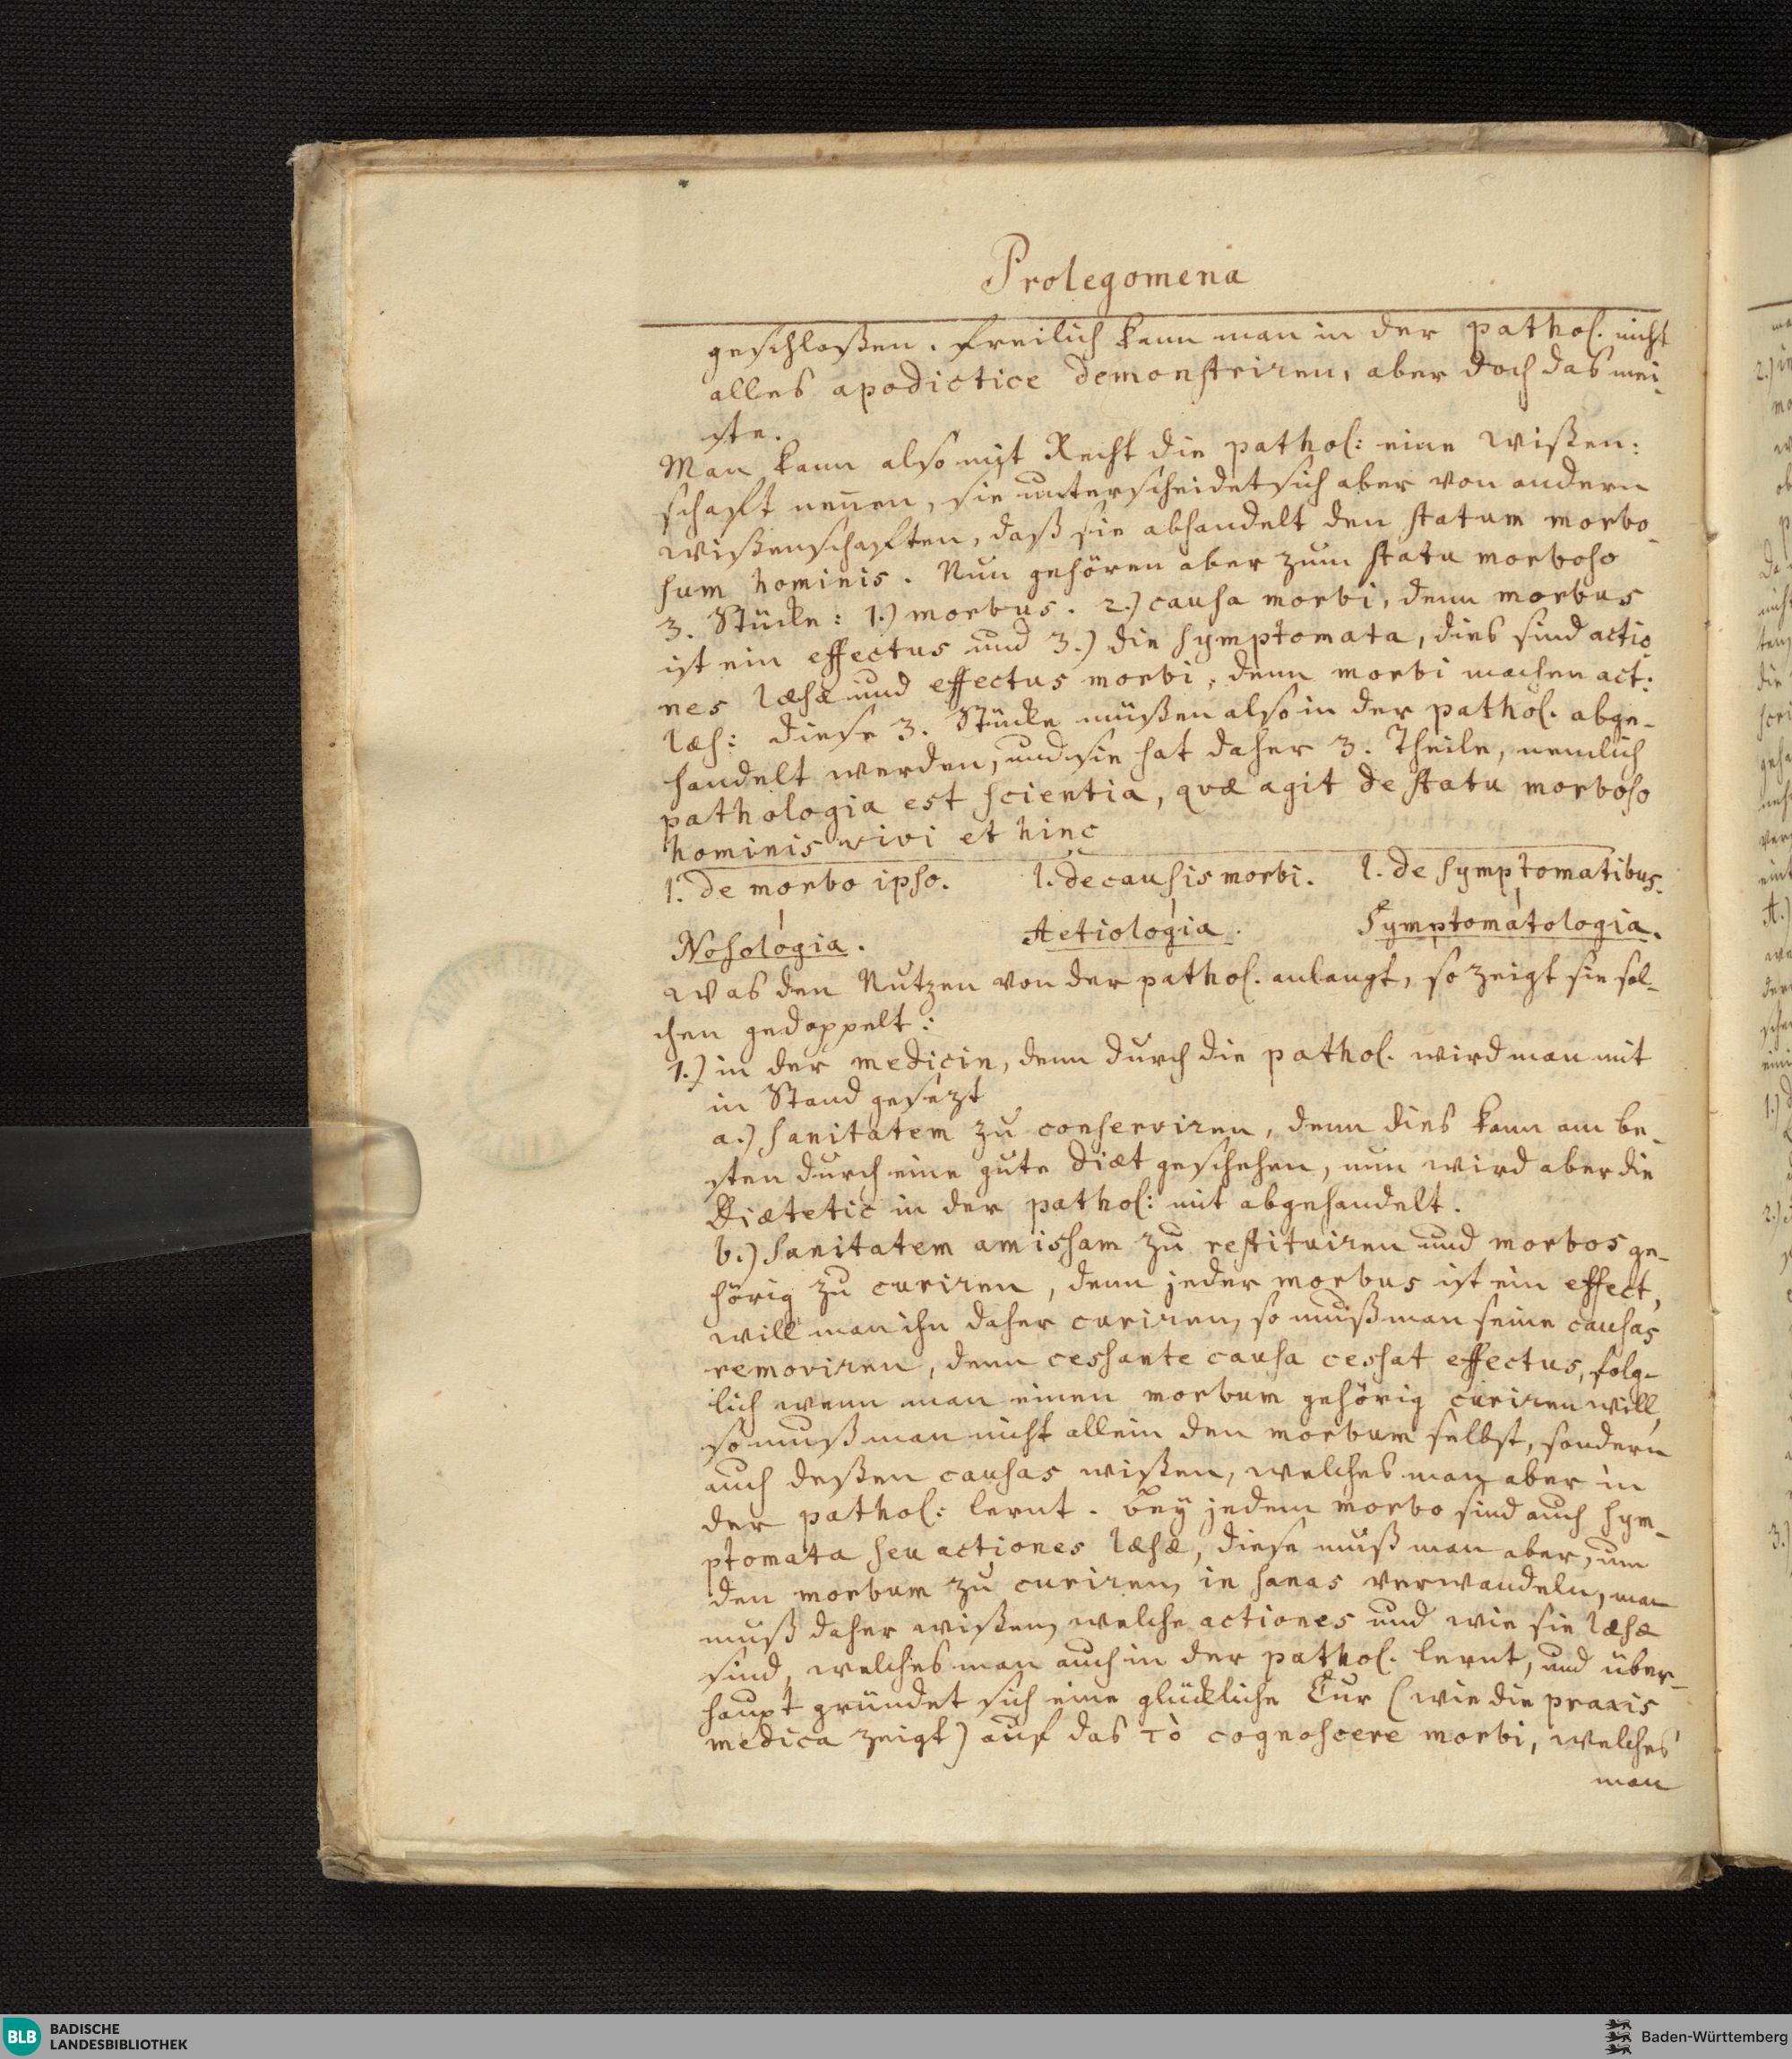 Prolegomena
geschloßen. Freilich kann man in der pathol. nicht
alles apodictice demonstriren, aber doch das mei-
ste.
Man kann also mit Recht die pathol: eine Wißen:
schaft nennen, sie unterscheidet sich aber von andern
Wißenschaften, daß sie abhandelt den statum morbo-
sum hominis. Nun gehören aber zum statu morboso
3. Stücke: 1.) morbus. 2.) causa morbi, denn morbus
ist ein effectus und 3.) die symptomata, dies sind actio
nes læsæ und effectus morbi, denn morbi machen act:
læs: diese 3. Stücke müßen also in der pathol. abge-
handelt werden, und sie hat daher 3. Theile, nemlich
pathologia est scientia, qvæ agit de statu morboso
hominis vivi et hinc
1. de morbo ipso. 1. de causis morbi. 1. de symptomatibus.
Nosologia. Aetiologia. Symptomatologia.
Was den Nutzen von der pathol. anlangt, so zeigt sie sol-
chen gedoppelt:
1.) in der medicin, denn durch die pathol. wird man mit
in Stand gesezt
a.) sanitatem zu conserviren, denn dies kann am be-
sten durch eine gute Diæt geschehen, nun wird aber die
Diætetic in der pathol: mit abgehandelt.
b.) sanitatem amissam zu restituiren und morbos ge-
hörig zu curiren, denn jeder morbus ist ein effect,
will man ihn daher curiren, so muß man seine causas
removiren, denn cessante causa cessat effectus, folg-
lich wenn man einen morbum gehörig curiren will,
so muß man nicht allein den morbum selbst, sondern
auch deßen causas wißen, welches man aber in
der pathol: lernt. Bey jedem morbo sind auch sym-
ptomata seu actiones læsæ, diese muß man aber, um
den morbum zu curiren, in sanas verwandeln, man
muß daher wißen, welche actiones und wie sie læsæ
sind, welches man auch in der pathol. lernt, und über-
haupt gründet sich eine glückliche Cur (wie die praxis
medica zeigt) auf das τὸ cognoscere morbi, welches
man
BLB BADISCHE
LANDESBIBLIOTHEK
Baden-Württemberg